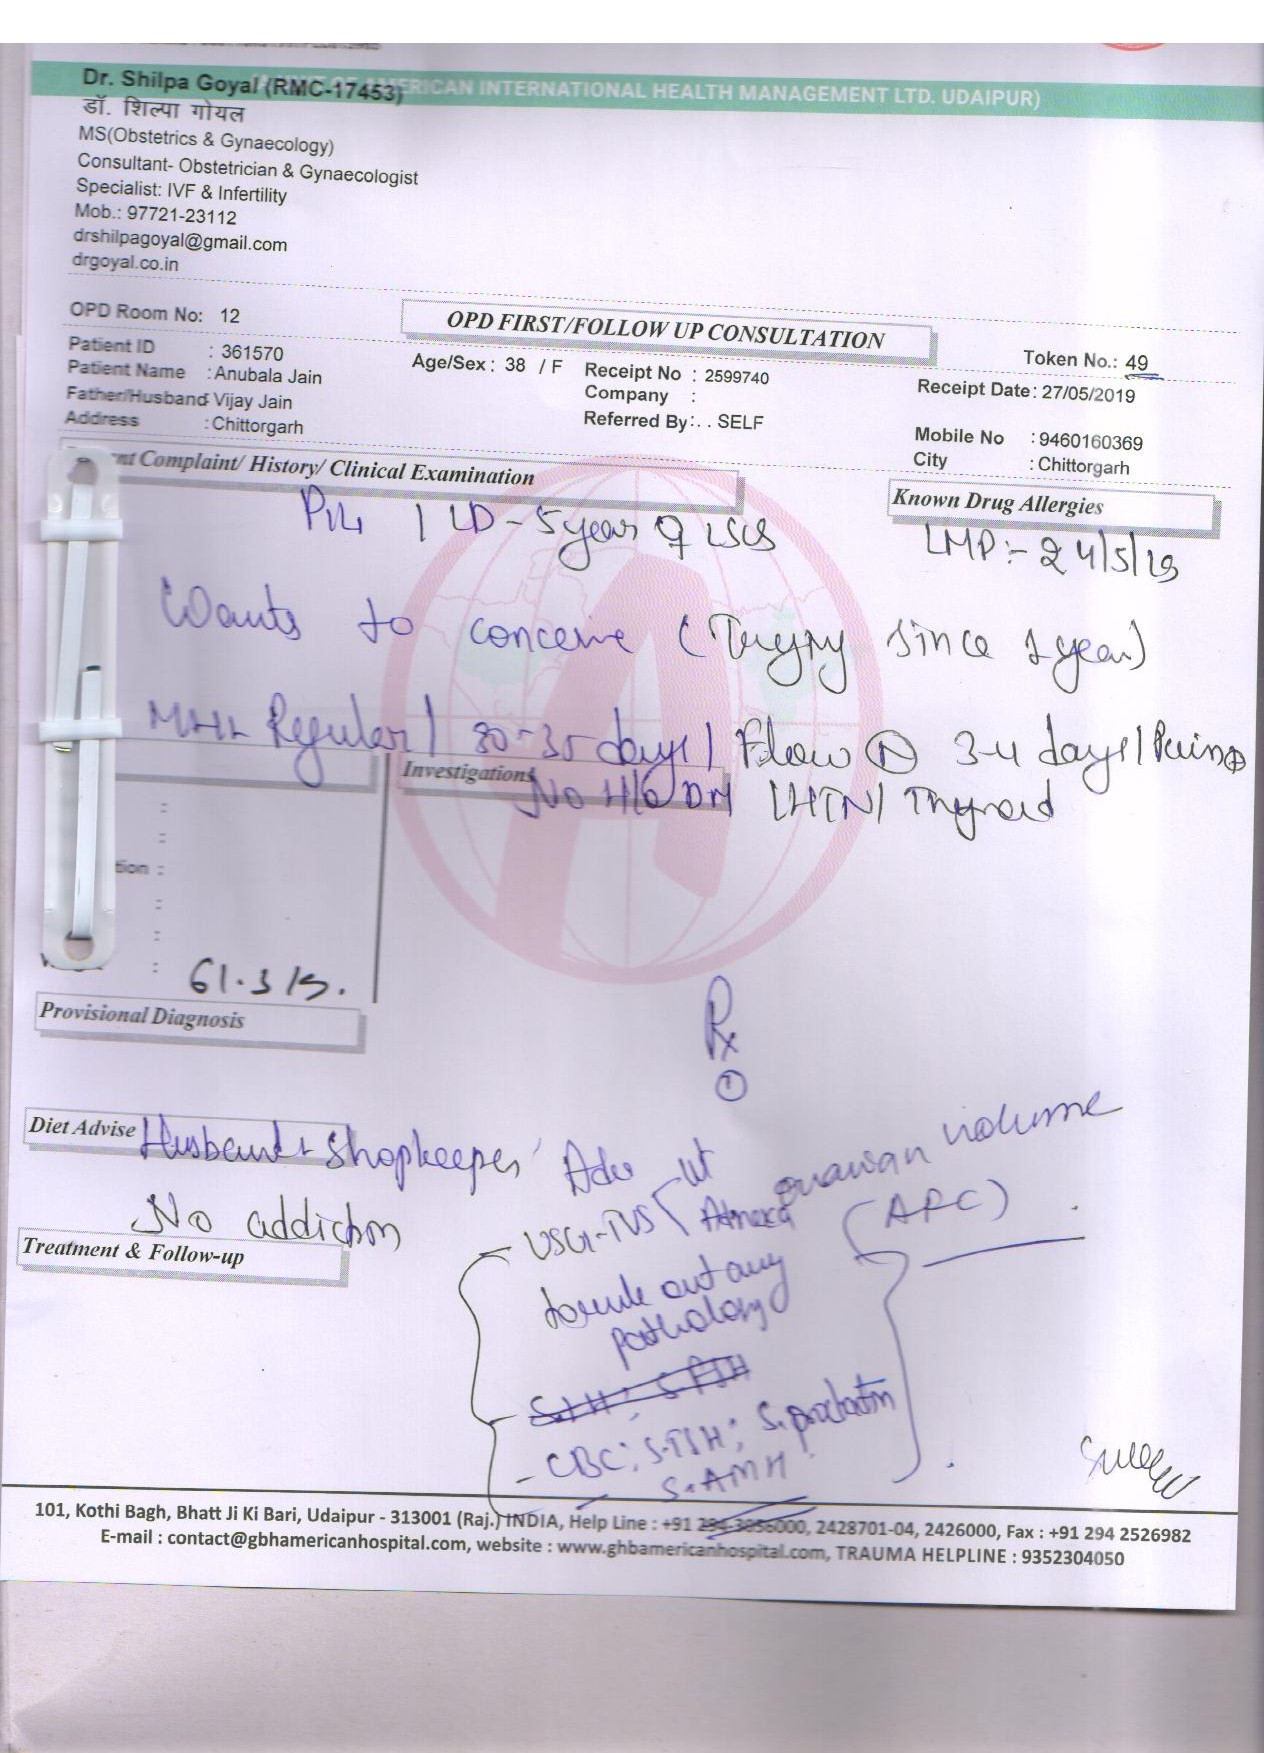 Dr. Shilpa Goyal (RMC-17453) ERICAN INTERNATIONAL HEALTH MANAGEMENT LTD. UDAIPUR)
डॉ. शिल्पा गोयल
MS(Obstetrics & Gynaecology)
Consultant- Obstetrician & Gynaecologist
Specialist: IVF & Infertility
Mob.: 97721-23112
drshilpagoyal@gmail.com
drgoyal.co.in
OPD Room No: 12
OPD FIRST/FOLLOW UP CONSULTATION
Token No.: 49
Patient ID : 361570
Age/Sex : 38 / F Receipt No : 2599740
Receipt Date : 27/05/2019
Patient Name : Anubala Jain
Company :
Father/Husband : Vijay Jain
Referred By: . . SELF
Mobile No : 9460160369
Address : Chittorgarh
City : Chittorgarh
nt Complaint/ History/ Clinical Examination
Known Drug Allergies
P1L1 LD - 5 year LSCS
LMP:- 24/5/19
Wants to conceive (Trying since 1 year)
Regular / 30-35 days / Flow N 3-4 days / Pain
Investigations
No H/O DM / HTN / Thyroid
tion :
: 61.3
Provisional Diagnosis
Rx
1
Diet Advise
Husband Shopkeeper
No addiction
Adv
USG-TVS
Ut
Adnexa
ovarian volume
(AFC)
to rule out any
pathology
- CBC; S.TSH; S.prolactin
S.AMH
Treatment & Follow-up
101, Kothi Bagh, Bhatt Ji Ki Bari, Udaipur - 313001 (Raj.) INDIA, Help Line : +91 294-3056000, 2428701-04, 2426000, Fax : +91 294 2526982
E-mail : contact@gbhamericanhospital.com, website : www.ghbamericanhospital.com, TRAUMA HELPLINE : 9352304050